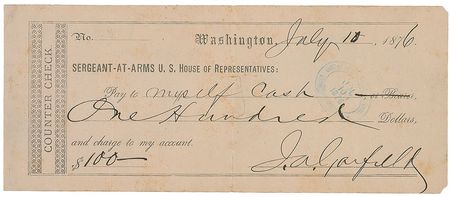 COUNTER CHECK.
No. Washington, July 10 1876
SERGEANT-AT-ARMS U. S. HOUSE OF REPRESENTATIVES:
Pay to myself Cash, or Bearer,
One Hundred Dollars,
and charge to my account.
$100 J. A. Garfield